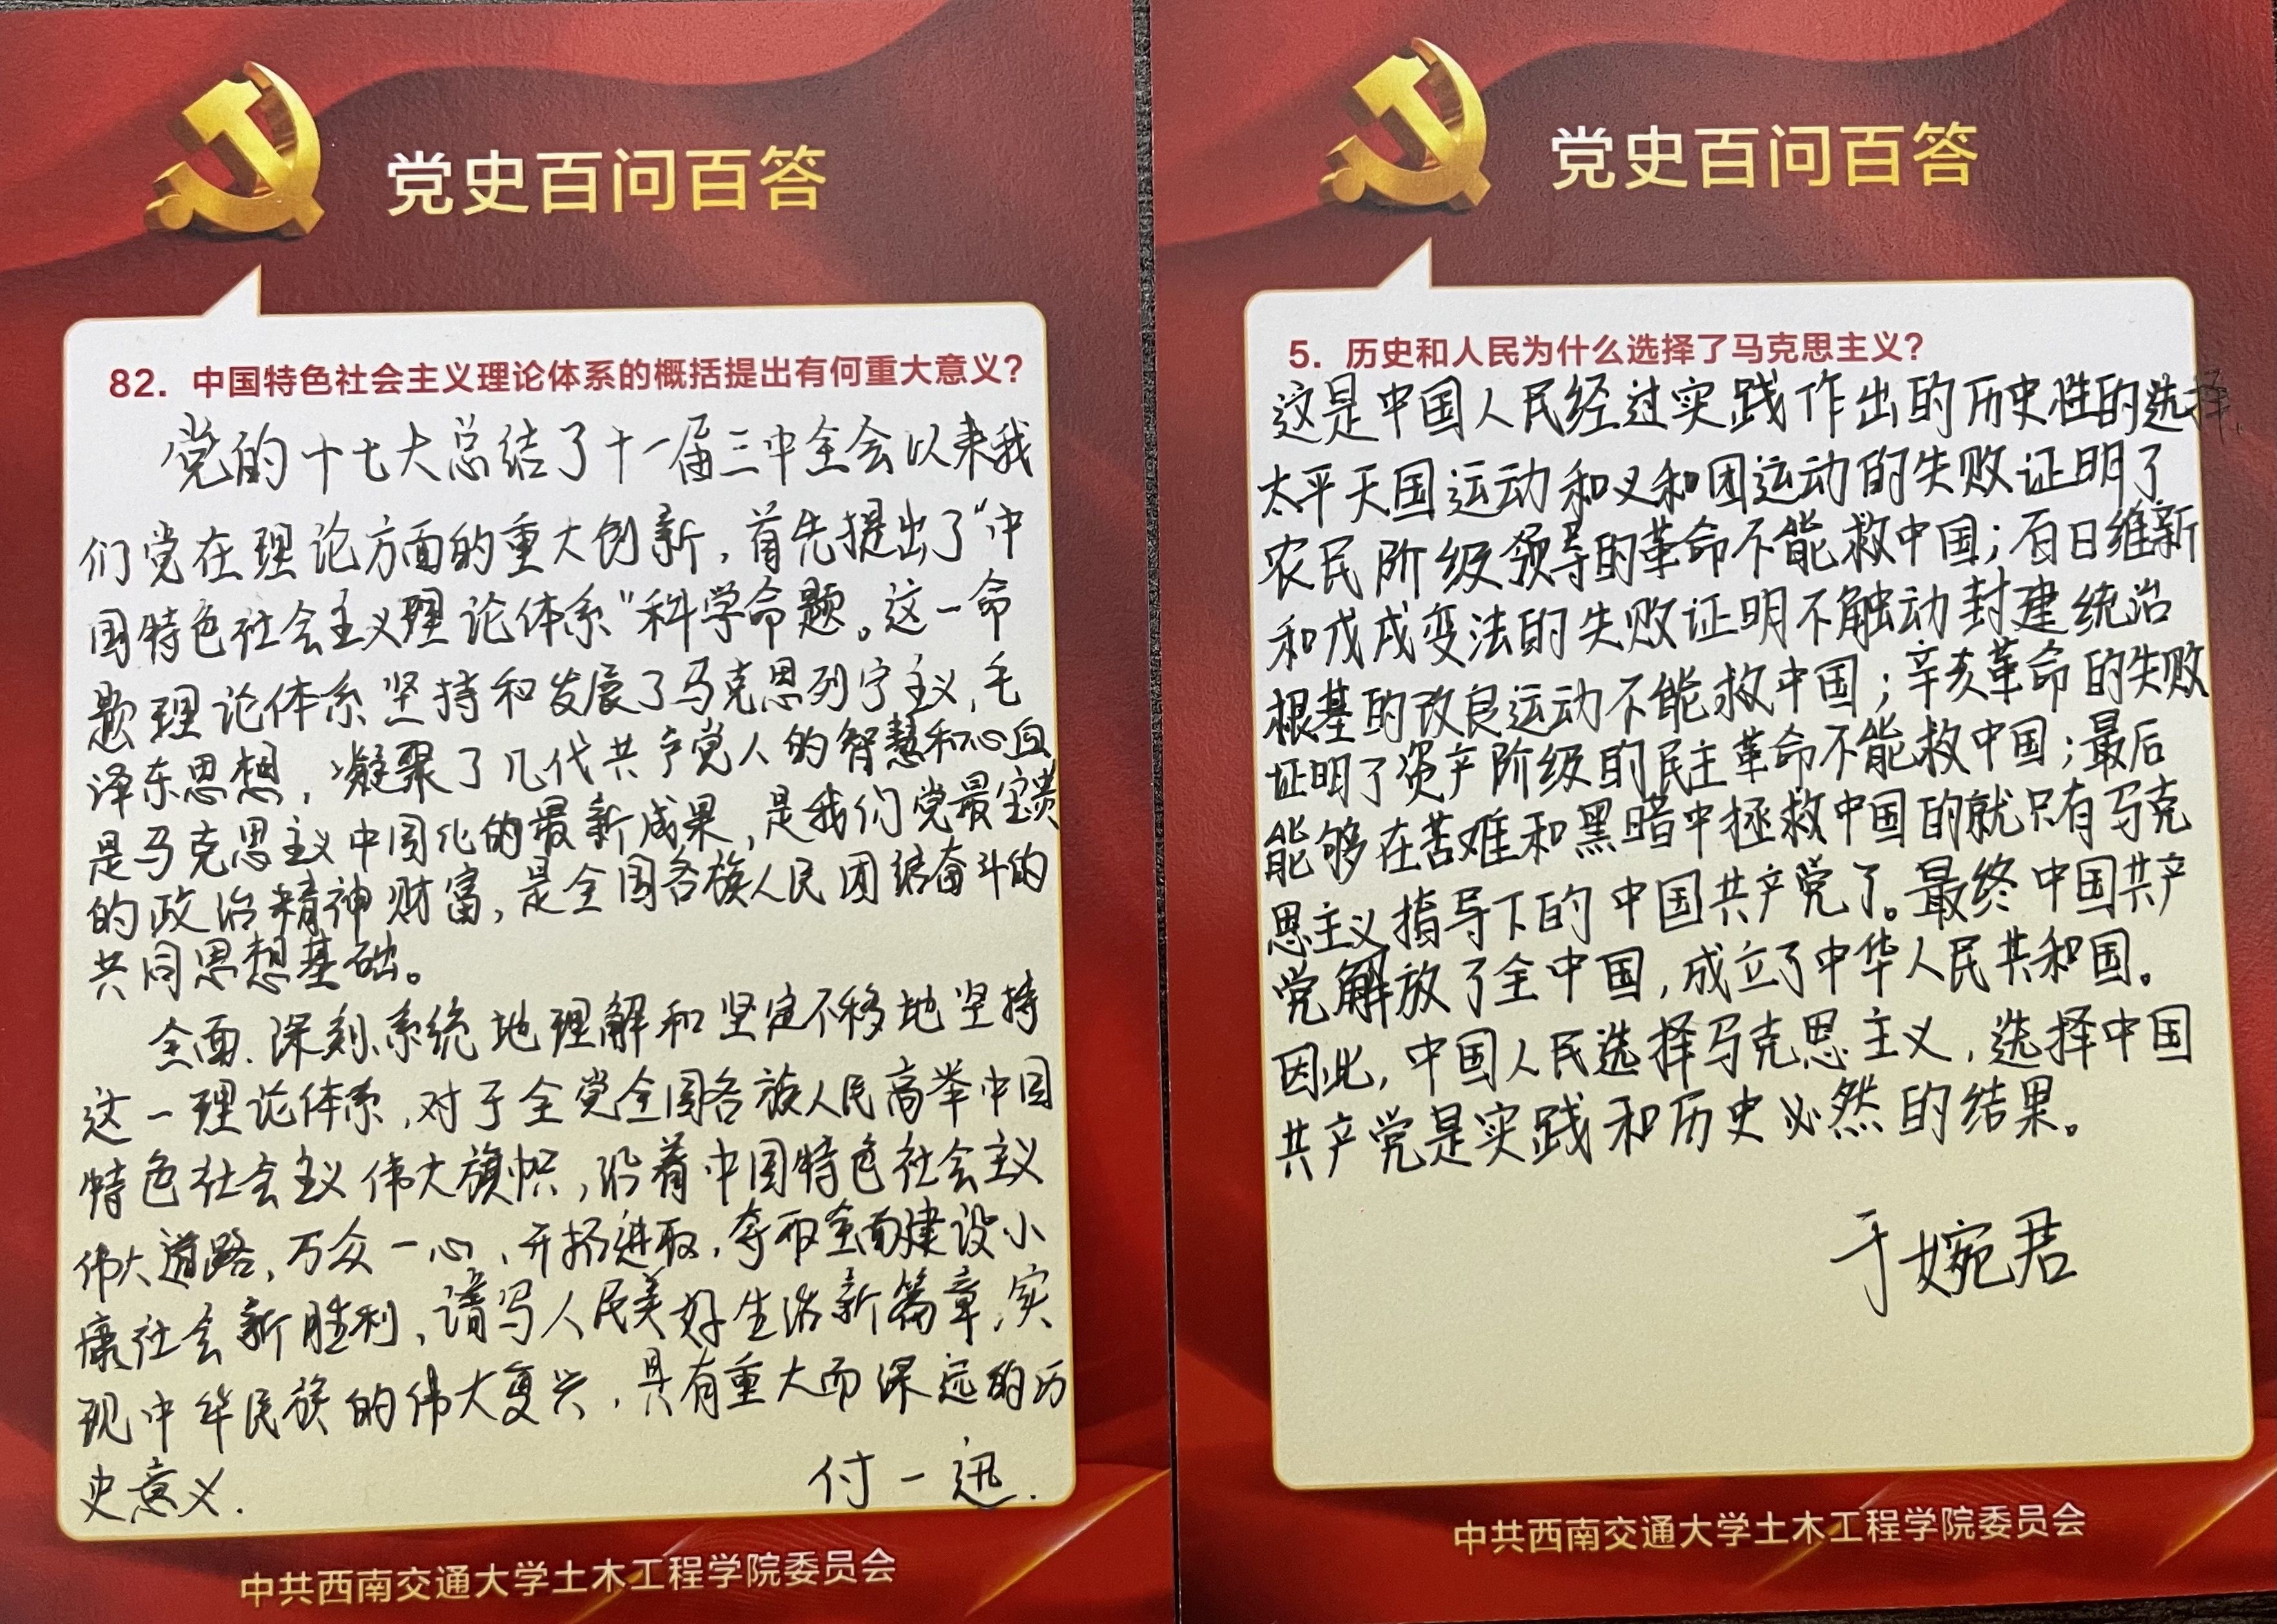 党史百问百答
82. 中国特色社会主义理论体系的概括提出有何重大意义?
党的十七大总结了十一届三中全会以来我
们党在理论方面的重大创新,首先提出了“中
国特色社会主义理论体系”科学命题。这一命
题理论体系坚持和发展了马克思列宁主义,毛
泽东思想,凝聚了几代共产党人的智慧和心血
是马克思主义中国化的最新成果,是我们党最宝贵
的政治精神财富,是全国各族人民团结奋斗的
共同思想基础。
全面、深刻、系统地理解和坚定不移地坚持
这一理论体系,对于全党全国各族人民高举中国
特色社会主义伟大旗帜,沿着中国特色社会主义
伟大道路,万众一心、开拓进取,夺取全面建设小
康社会新胜利,谱写人民美好生活新篇章,实
现中华民族的伟大复兴,具有重大而深远的历
史意义.
付一迅.
中共西南交通大学土木工程学院委员会
党史百问百答
5. 历史和人民为什么选择了马克思主义?
这是中国人民经过实践作出的历史性的选择.
太平天国运动和义和团运动的失败证明了
农民阶级领导的革命不能救中国;百日维新
和戊戌变法的失败证明不触动封建统治
根基的改良运动不能救中国;辛亥革命的失败
证明了资产阶级的民主革命不能救中国;最后
能够在苦难和黑暗中拯救中国的就只有马克
思主义指导下的中国共产党了。最终中国共产
党解放了全中国,成立了中华人民共和国。
因此,中国人民选择马克思主义,选择中国
共产党是实践和历史必然的结果。
于婉君
中共西南交通大学土木工程学院委员会